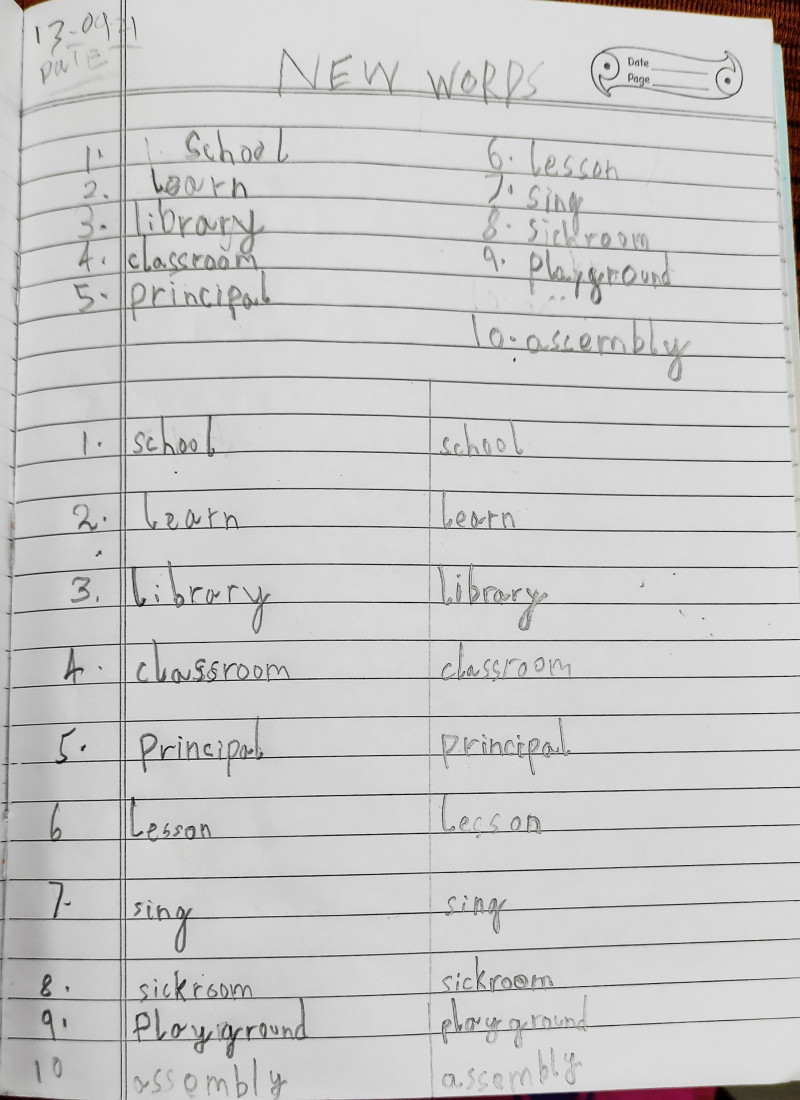 13-04-21
DATE
NEW WORDS
Date
Page
1. School
2. Learn
3. library
4. classroom
5. principal
6. lesson
7. sing
8. sickroom
9. playground
10. assembly
1. school school
2. learn learn
3. library library
4. classroom classroom
5. principal principal
6 lesson lesson
7- sing sing
8. sickroom sickroom
9. playground playground
10 assembly assembly